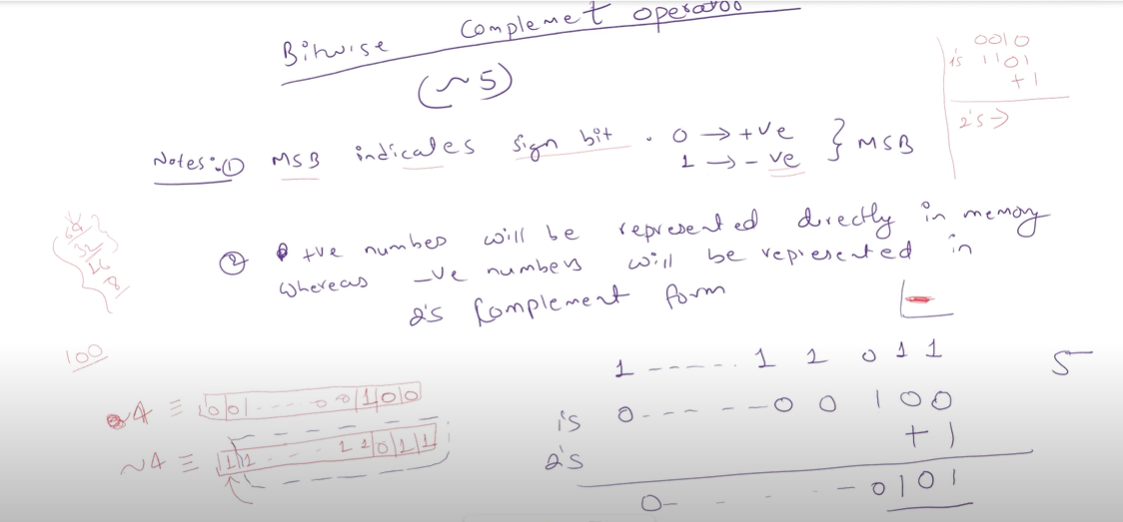 Bitwise Complemet operator
(~5)
Notes:① MSB indicates sign bit . 0 → +ve } MSB
1 → - ve
② +ve number will be represented directly in memory
whereas -ve numbers will be represented in
2's Complement form
0010
1's 1101
+1
2's →
64
32
16
8
100
4 ≡ 00 - - - - 00100
~4 ≡ 11 - - - - 11011
1 - - - - - - 1 1 0 1 1
5
1's 0 - - - - - - 0 0 1 0 0
+ 1
2's
0 - - - - - 0101